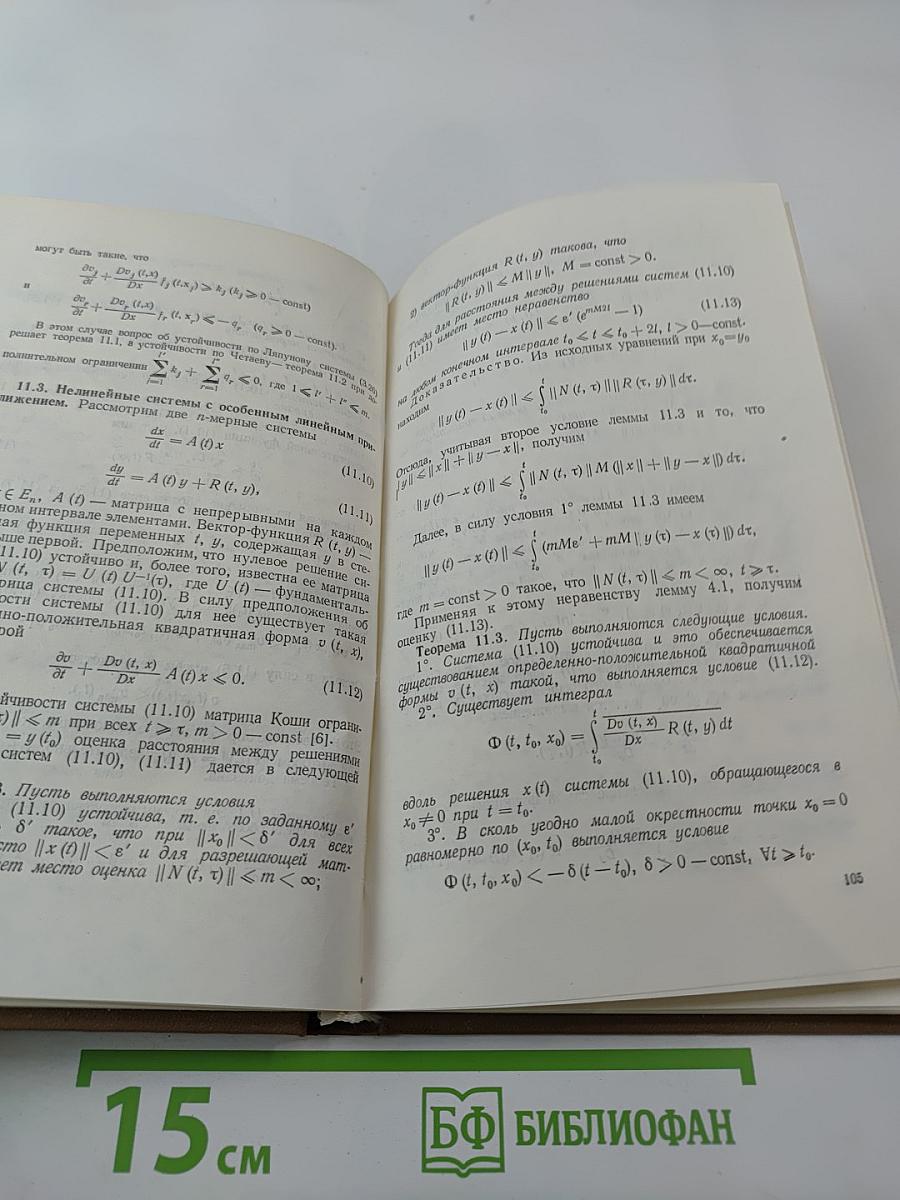 могут быть такие, что
∂v_j/∂t + Dv_j (t,x)/Dx f_j (t,x_j) ⩾ k_j (k_j ⩾ 0 — const)
и
∂v_r/∂t + Dv_r (t,x)/Dx f_r (t, x_r) ⩽ — q_r (q_r ⩾ 0 — const).
В этом случае вопрос об устойчивости по Ляпунову системы (3.26)
решает теорема 11.1, а устойчивости по Четаеву — теорема 11.2 при до-
полнительном ограничении ∑ k_j + ∑ q_r ⩽ 0, где 1 ⩽ l′ + l″ ⩽ m.
11.3. Нелинейные системы с особенным линейным при-
лижением. Рассмотрим две n-мерные системы
dx/dt = A (t) x (11.10)
dy/dt = A (t) y + R (t, y), (11.11)
∈ E_n, A (t) — матрица с непрерывными на каждом
ном интервале элементами. Вектор-функция R (t, y) —
ная функция переменных t, y, содержащая y в сте-
ыше первой. Предположим, что нулевое решение си-
(11.10) устойчиво и, более того, известна ее матрица
N (t, τ) = U (t) U⁻¹(τ), где U (t) — фундаменталь-
рица системы (11.10). В силу предположения об
ости системы (11.10) для нее существует такая
но-положительная квадратичная форма v (t, x),
рой
∂v/∂t + Dv (t, x)/Dx A (t) x ⩽ 0. (11.12)
йчивости системы (11.10) матрица Коши ограни-
τ) ‖ ⩽ m при всех t ⩾ τ, m > 0 — const [6].
= y (t₀) оценка расстояния между решениями
систем (11.10), (11.11) дается в следующей
3. Пусть выполняются условия
(11.10) устойчива, т. е. по заданному ε′
δ′ такое, что при ‖ x₀ ‖ < δ′ для всех
сто ‖ x (t) ‖ < ε′ и для разрешающей мат-
ет место оценка ‖ N (t, τ) ‖ ⩽ m < ∞;
2) вектор-функция R (t, y) такова, что
‖ R (t, y) ‖ ⩽ M ‖ y ‖, M = const > 0.
Тогда для расстояния между решениями систем (11.10)
и (11.11) имеет место неравенство
‖ y (t) — x (t) ‖ ⩽ ε′ (e^{mM2l} — 1) (11.13)
на любом конечном интервале t₀ ⩽ t ⩽ t₀ + 2l, l > 0—const.
Доказательство. Из исходных уравнений при x₀=y₀
находим
‖ y (t) — x (t) ‖ ⩽ ∫_{t₀}^{t} ‖ N (t, τ) ‖ ‖ R (τ, y) ‖ dτ.
Отсюда, учитывая второе условие леммы 11.3 и то, что
‖ y ‖ ⩽ ‖ x ‖ + ‖ y — x ‖, получим
‖ y (t) — x (t) ‖ ⩽ ∫_{t₀}^{t} ‖ N (t, τ) ‖ M (‖ x ‖ + ‖ y — x ‖) dτ.
Далее, в силу условия 1° леммы 11.3 имеем
‖ y (t) — x (t) ‖ ⩽ ∫_{t₀}^{t} (mMε′ + mM ‖ y (τ) — x (τ) ‖) dτ,
где m = const > 0 такое, что ‖ N (t, τ) ‖ ⩽ m < ∞, t ⩾ τ.
Применяя к этому неравенству лемму 4.1, получим
оценку (11.13).
Теорема 11.3. Пусть выполняются следующие условия.
1°. Система (11.10) устойчива и это обеспечивается
существованием определенно-положительной квадратичной
формы v (t, x) такой, что выполняется условие (11.12).
2°. Существует интеграл
Φ (t, t₀, x₀) = ∫_{t₀}^{t} Dv (t, x)/Dx R (t, y) dt
вдоль решения x (t) системы (11.10), обращающегося в
x₀ ≠ 0 при t = t₀.
3°. В сколь угодно малой окрестности точки x₀ = 0
равномерно по (x₀, t₀) выполняется условие
Φ (t, t₀, x₀) < — δ (t — t₀), δ > 0 — const, ∀t ⩾ t₀.
105
15 см
БФ БИБЛИОФАН